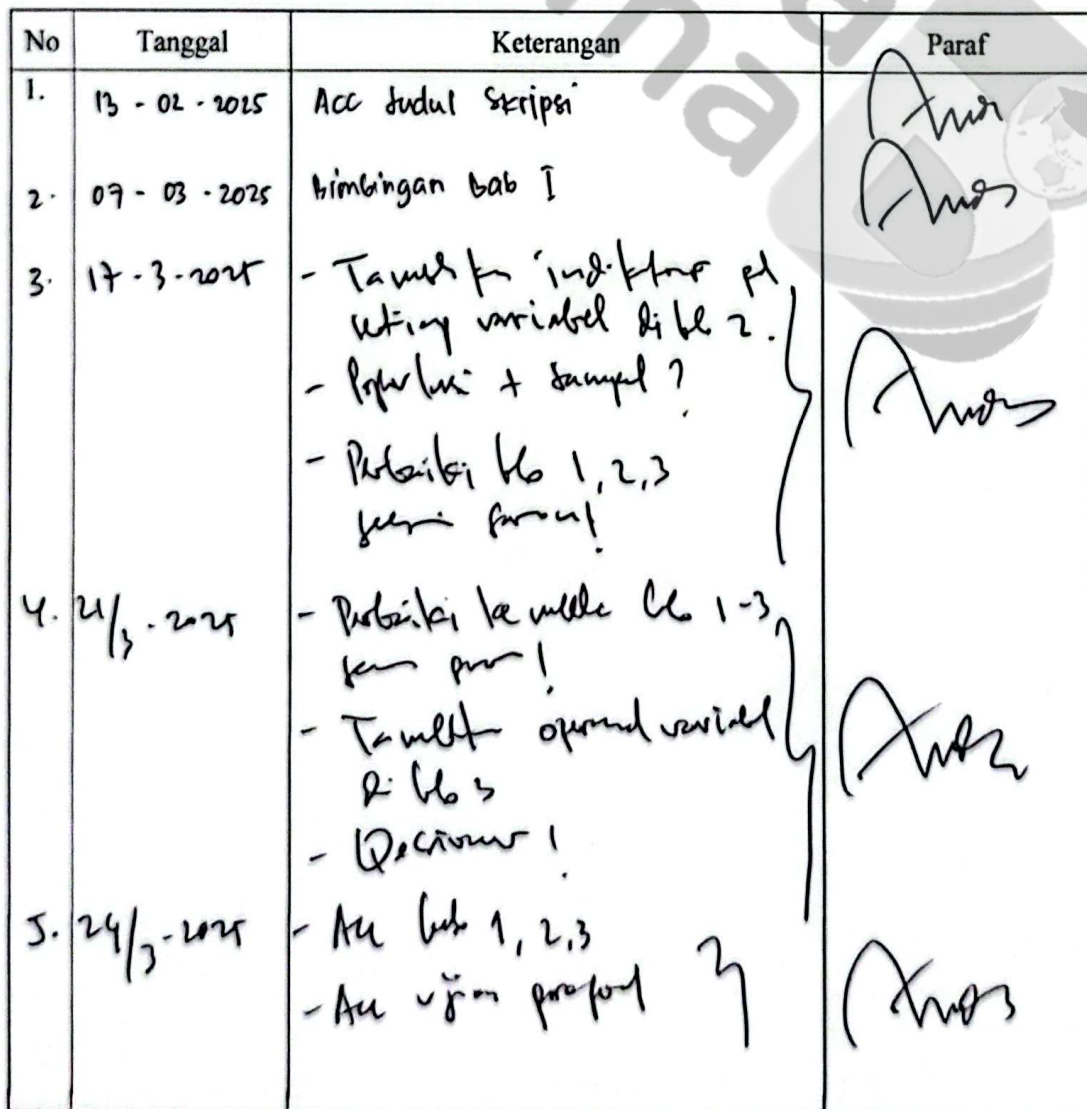 No Tanggal Keterangan Paraf
1. 13 - 02 - 2025 Acc Judul Skripsi
2. 07 - 03 - 2025 Bimbingan Bab I
3. 17 - 3 - 2025 - Tambahkan indikator pd
setiap variabel di bab 2.
- Populasi + sampel ?
- Perbaiki bab 1, 2, 3
sesuai saran!
4. 21/3 - 2025 - Perbaiki kembali bab 1-3
!
- Tambahkan variabel
di bab 3
- !
5. 24/3 - 2025 - Acc bab 1, 2, 3
- Acc ujian proposal